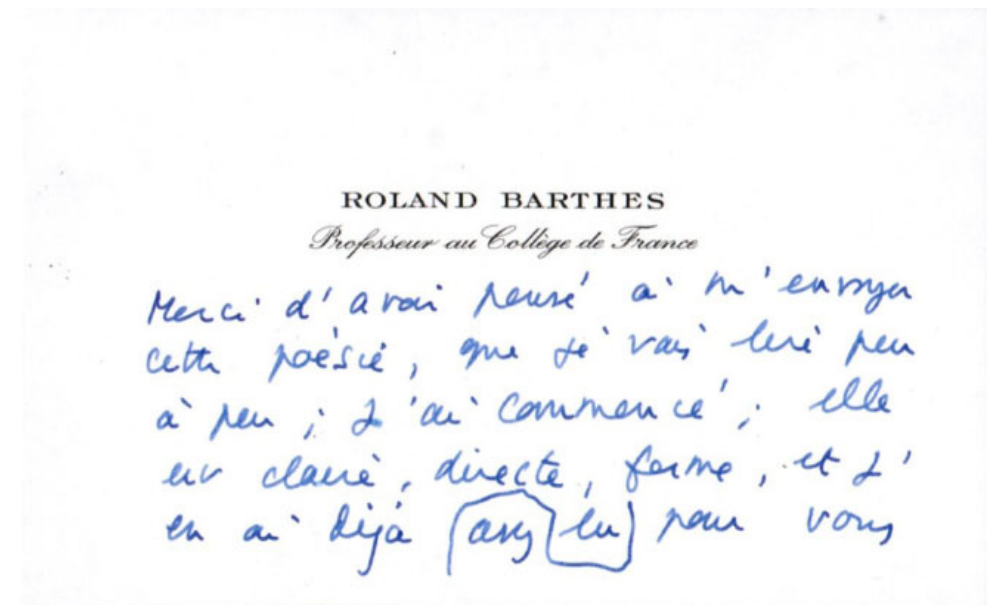 ROLAND BARTHES
Professeur au Collège de France
Merci d'avoir pensé à m'envoyer
cette poésie, que je vais lire peu
à peu ; j'ai commencé ; elle
est claire, directe, ferme, et j'
en ai déjà assez lu pour vous